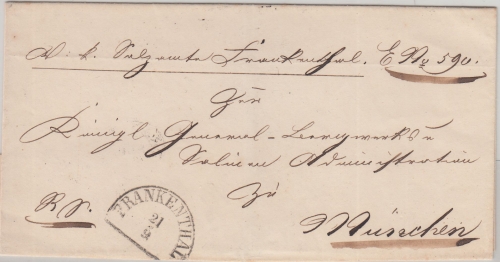 V. k. Salzamte Frankenthal. E No 590.
Zur
Königl General-Bergwerks u
Salinen Administration
zu
R. S.
München
FRANKENTHAL
21